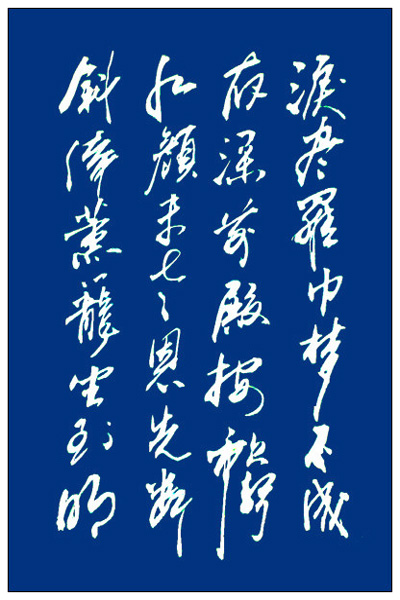 淚尽羅巾梦不成
夜深前殿按歌声
红顏未老恩先断
斜倚薰籠坐到明